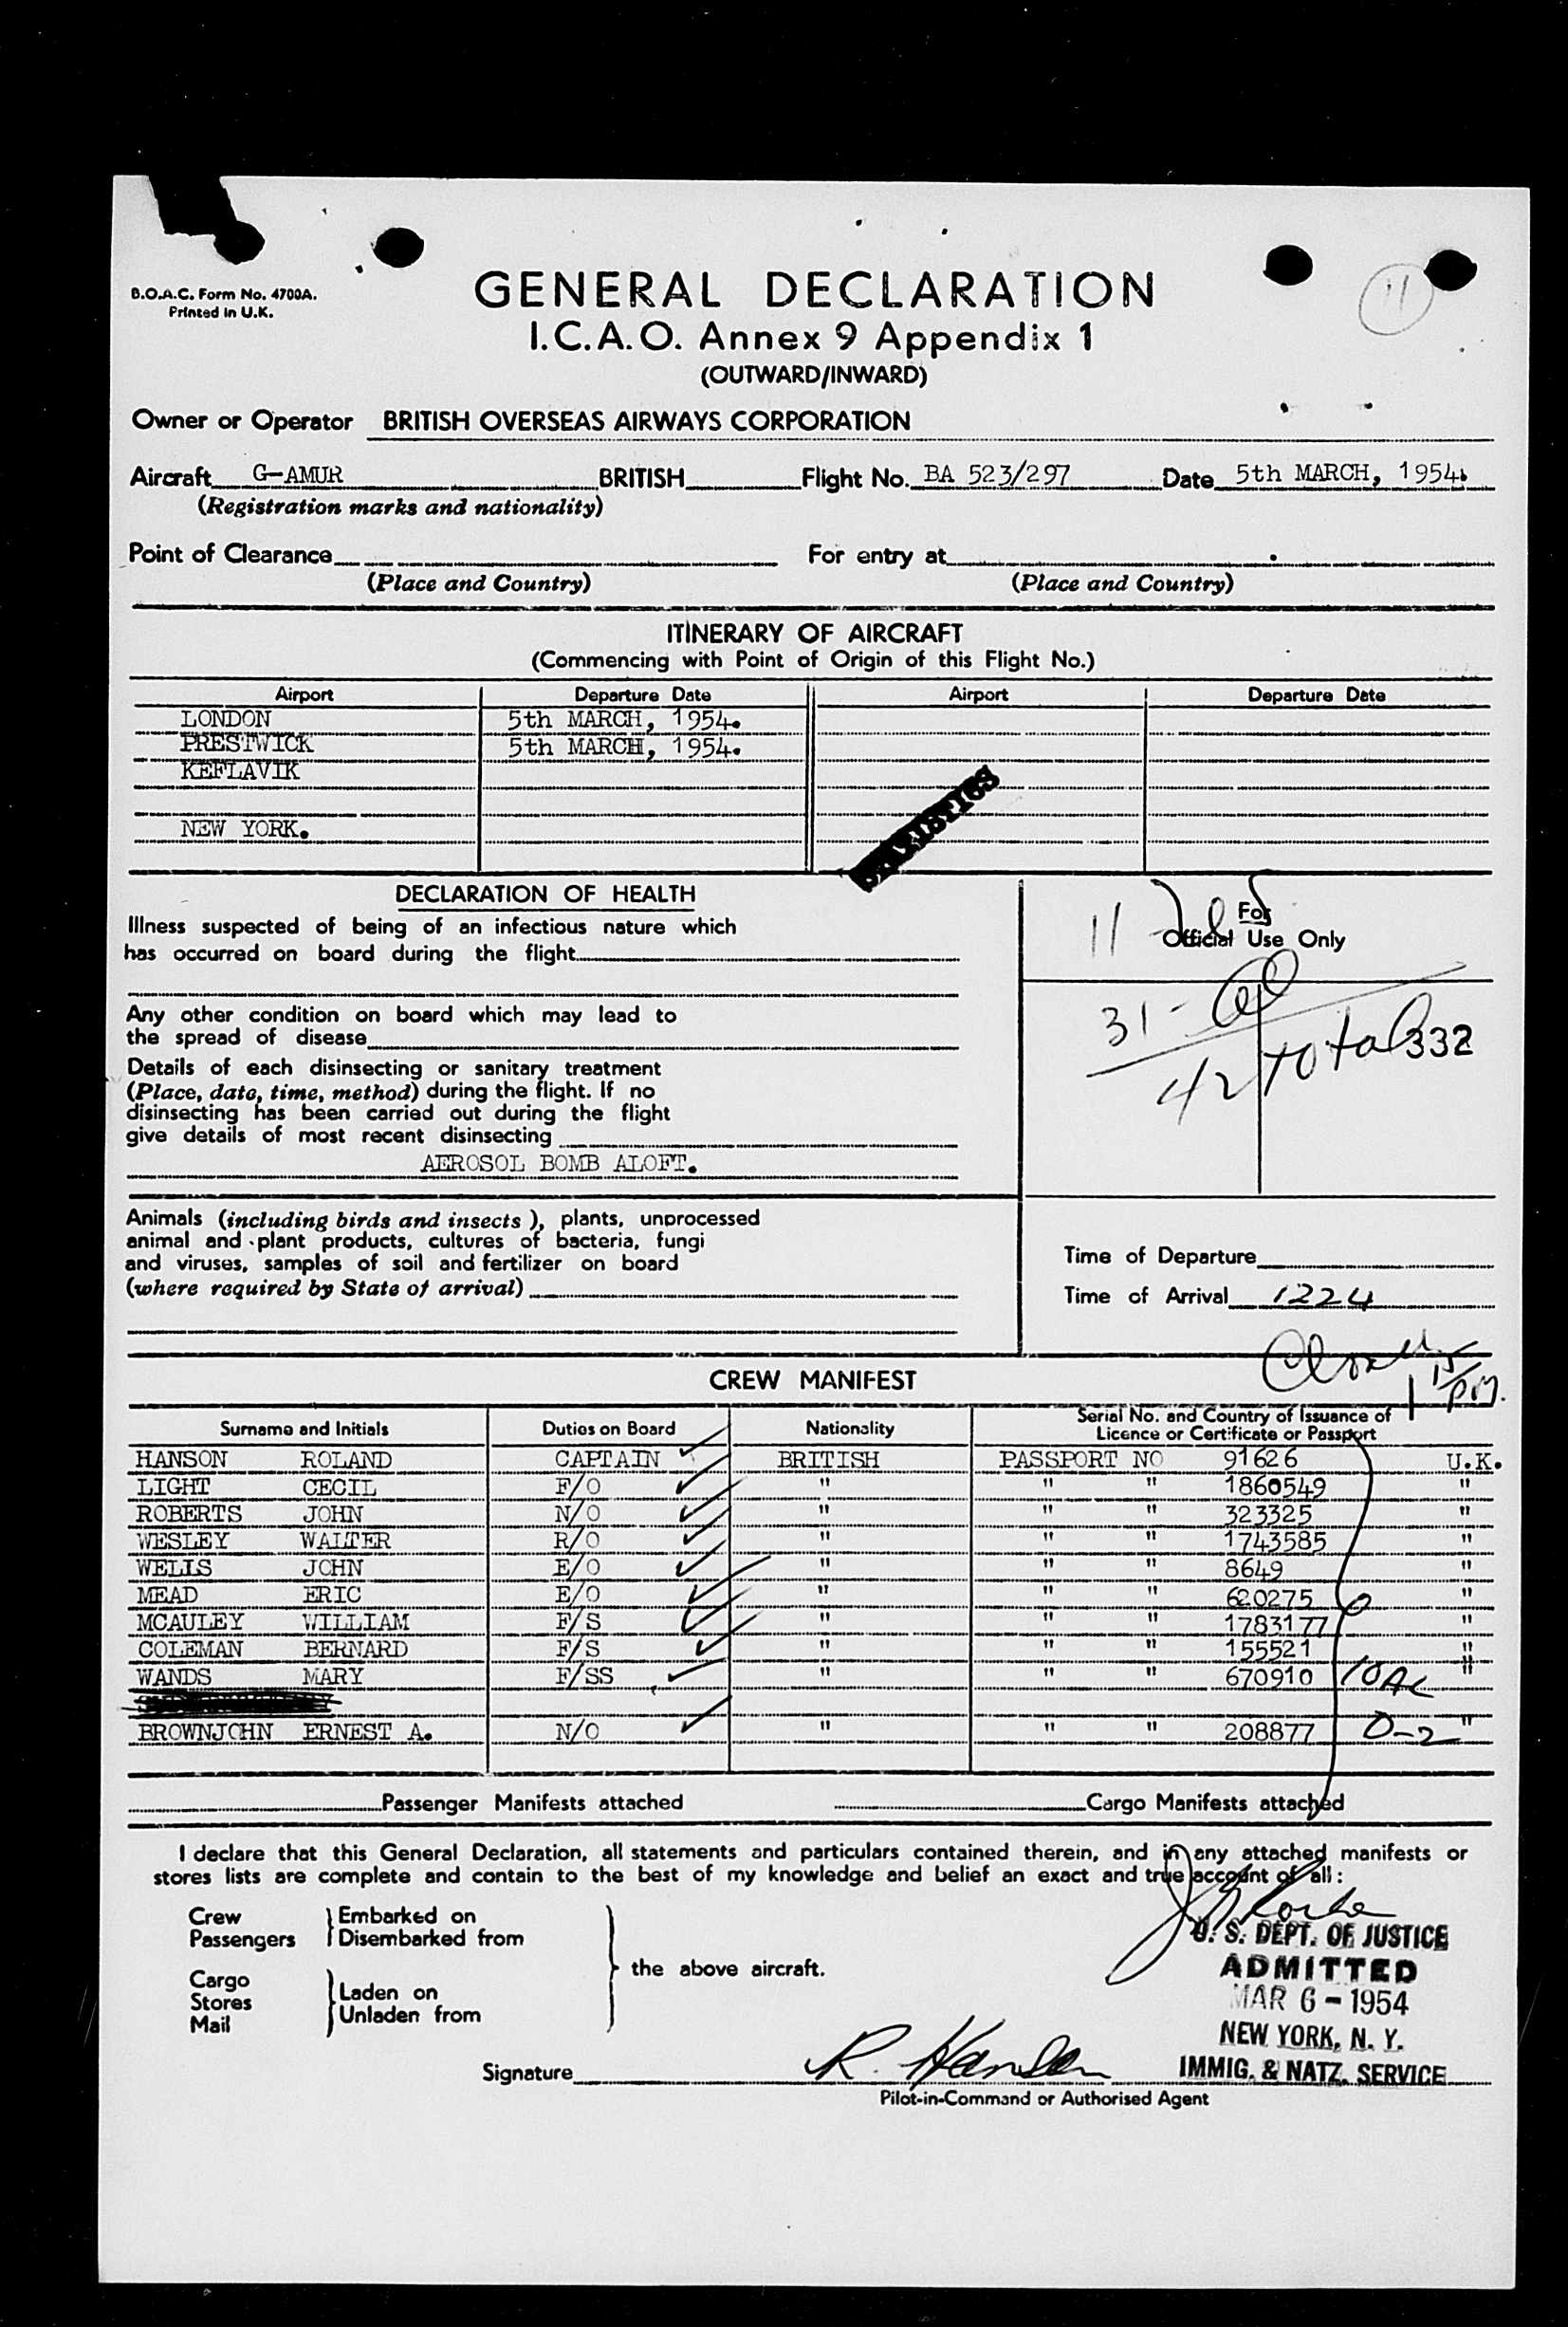 B.O.A.C. Form No. 4700A.
Printed in U.K.
11
GENERAL DECLARATION
I.C.A.O. Annex 9 Appendix 1
(OUTWARD/INWARD)
Owner or Operator BRITISH OVERSEAS AIRWAYS CORPORATION
Aircraft G-AMUR BRITISH Flight No. BA 523/297 Date 5th MARCH, 1954.
(Registration marks and nationality)
Point of Clearance For entry at
(Place and Country) (Place and Country)
ITINERARY OF AIRCRAFT
(Commencing with Point of Origin of this Flight No.)
Airport Departure Date Airport Departure Date
LONDON 5th MARCH, 1954.
PRESTWICK 5th MARCH, 1954.
KEFLAVIK
NEW YORK.
STATISTICS
DECLARATION OF HEALTH
Illness suspected of being of an infectious nature which
has occurred on board during the flight
Any other condition on board which may lead to
the spread of disease
Details of each disinsecting or sanitary treatment
(Place, date, time, method) during the flight. If no
disinsecting has been carried out during the flight
give details of most recent disinsecting
AEROSOL BOMB ALOFT.
Animals (including birds and insects), plants, unprocessed
animal and plant products, cultures of bacteria, fungi
and viruses, samples of soil and fertilizer on board
(where required by State of arrival)
For
11 Official Use Only
31 -
42 total 332
Time of Departure
Time of Arrival 1224
1 15/PM.
CREW MANIFEST
Surname and Initials Duties on Board Nationality Serial No. and Country of Issuance of
Licence or Certificate or Passport
HANSON ROLAND CAPTAIN BRITISH PASSPORT NO 91626 U.K.
LIGHT CECIL F/O " " " 1860549 "
ROBERTS JOHN N/O " " " 323325 "
WESLEY WALTER R/O " " " 1743585 "
WELLS JOHN E/O " " " 8649 "
MEAD ERIC E/O " " " 620275 "
MCAULEY WILLIAM F/S " " " 1783177 "
COLEMAN BERNARD F/S " " " 155521 "
WANDS MARY F/SS " " " 670910 10AC "
BROWNJOHN ERNEST A. N/O " " " 208877 D-2 "
Passenger Manifests attached Cargo Manifests attached
I declare that this General Declaration, all statements and particulars contained therein, and in any attached manifests or
stores lists are complete and contain to the best of my knowledge and belief an exact and true account of all:
Crew Embarked on
Passengers Disembarked from
the above aircraft.
Cargo
Stores Laden on
Mail Unladen from
U. S. DEPT. OF JUSTICE
ADMITTED
MAR 6 - 1954
NEW YORK, N. Y.
IMMIG. & NATZ. SERVICE
Signature R. Hanson
Pilot-in-Command or Authorised Agent